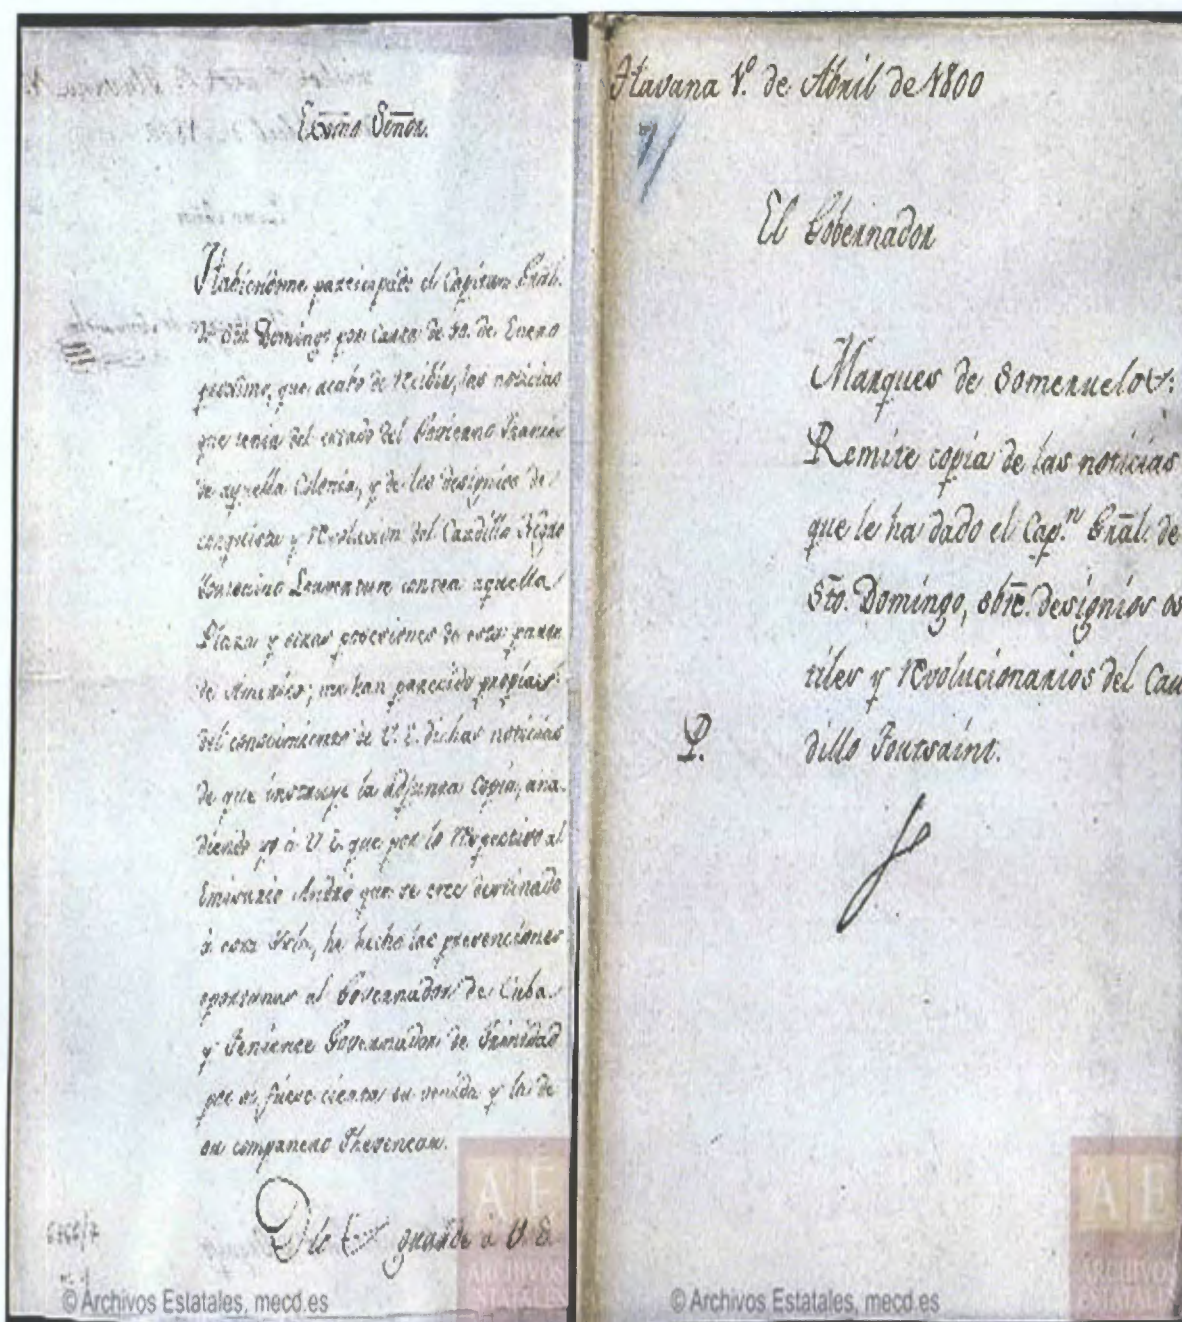 Excmo Señor.
Habiendome participado el Capitan Gral.
de Sto. Domingo por Carta de 30. de Enero
proximo, que acabo de recibir, las noticias
que tenia del estado del Govierno Frances
de aquella Colonia, y de los designios de
conquista y revolucion del Caudillo Negro
contra aquella
Plaza y otras posesiones de esta parte
de America; me han parecido propias
del conocimiento de V. E. dichas noticias
de que instruye la adjunta copia, aña-
diendo yo á V. E. que por lo respectivo al
Emisario que se cree destinado
á esta Isla, he hecho las prevenciones
oportunas al Governador de Cuba
y Teniente Governador de Trinidad
por si fuere cierta su venida y la de
su compañero
Dios guarde á V. E.
© Archivos Estatales, mecd.es
Havana 1º. de Abril de 1800
El Gobernador
Marques de Someruelos:
Remite copia de las noticias
que le ha dado el Cap.n Gnãl. de
Sto. Domingo, sbre. designios os
tiles y revolucionarios del Cau
P. dillo Toussaint.
A E
ARCHIVOS
ESTATALES
© Archivos Estatales, mecd.es
A E
ARCHIVOS
ESTATALES